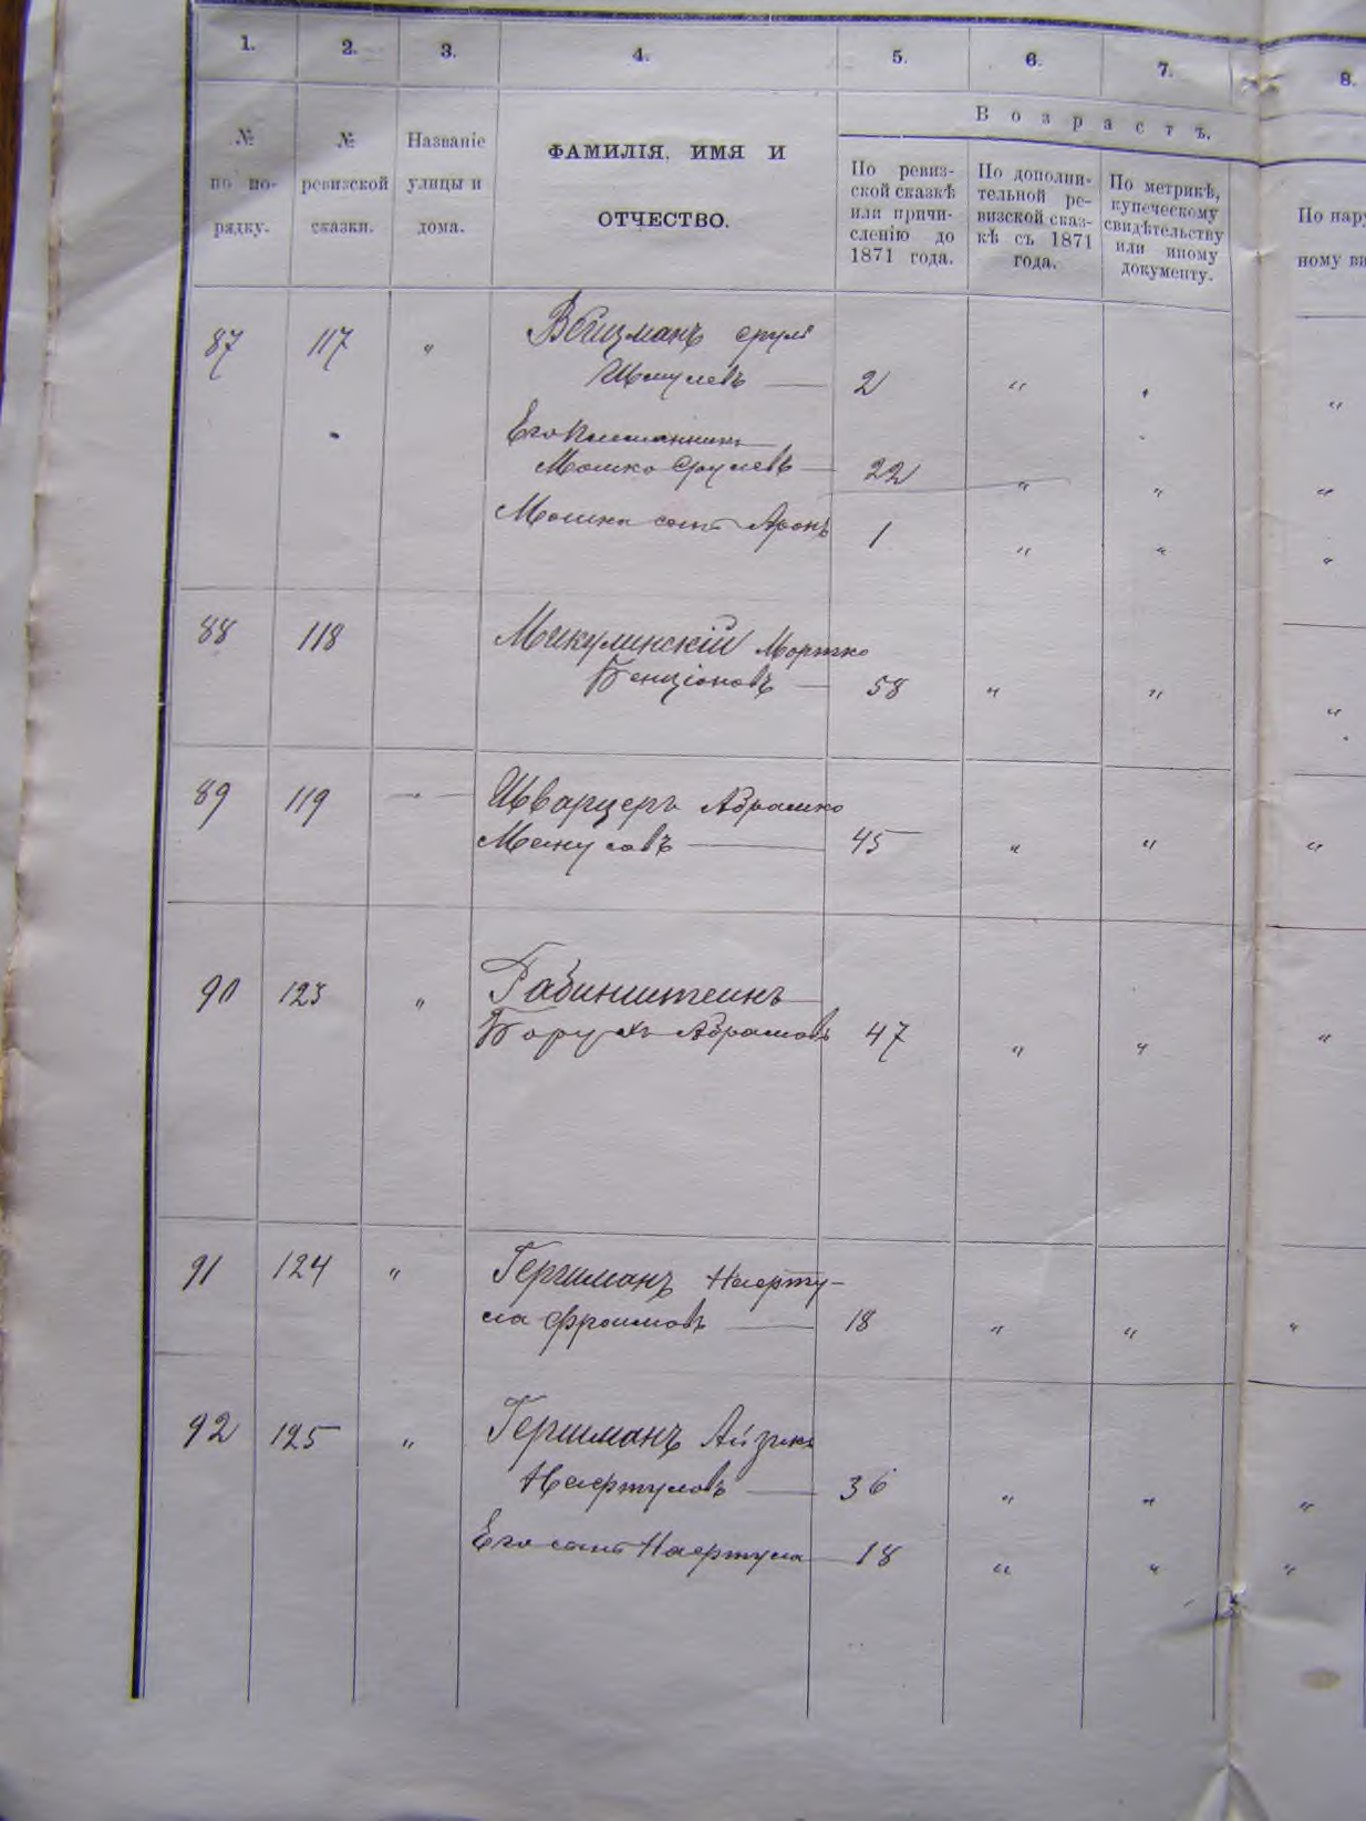 1. 2. 3. 4. 5. 6. 7. 8.
№ по по- рядку.
№ ревизской сказки.
Названіе улицы и дома.
ФАМИЛІЯ, ИМЯ И
ОТЧЕСТВО.
Возрастъ.
По ревиз-
ской сказкѣ
или причи-
сленію до
1871 года.
По дополни-
тельной ре-
визской сказ-
кѣ съ 1871
года.
По метрикѣ,
купеческому
свидѣтельству
или иному
документу.
По нар
ному ви
87 117 " Вейцманъ Сруль
Шмулевъ — 2 " " "
Его племянникъ
Мошко Срулевъ — 22 " " "
Мошка сынъ Аронъ 1 " " "
88 118 Микулинскій Мортко
Бенціоновъ — 58 " " "
89 119 — Шварцеръ Абрашко
Манусовъ — 45 " " "
90 123 " Рабинштеинъ
Борухъ Абрамовъ 47 " " "
91 124 " Гершманъ Нафту-
ла Фроимовъ — 18 " " "
92 125 " Гершманъ Айзикъ
Нафтуловъ — 36 " " "
Его сынъ Нафтула 18 " " "